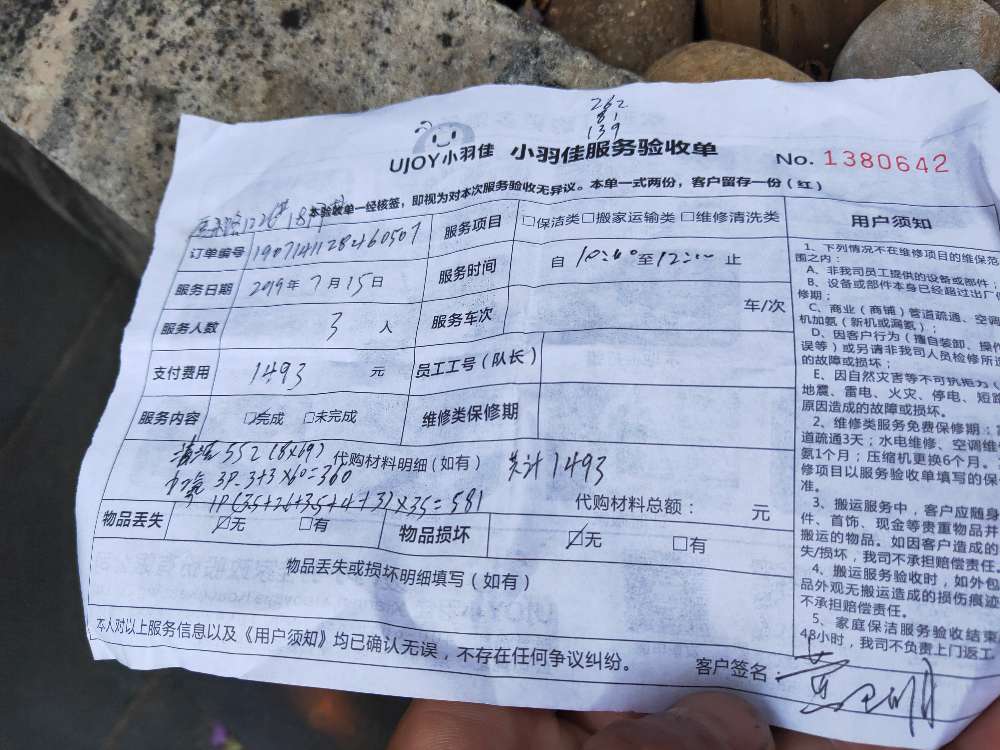 262
81
139
UJOY小羽佳 小羽佳服务验收单 No. 1380642
本验收单一经核签，即视为对本次服务验收无异议。本单一式两份，客户留存一份（红）
订单编号 1907141128460507 服务项目 □保洁类 □搬家运输类 □维修清洗类
服务日期 2019年7月15日 服务时间 自 10:00 至 12:00 止
服务人数 3 人 服务车次 车/次
支付费用 1493 元 员工工号（队长）
服务内容 □完成 □未完成 维修类保修期
清洗 552 (8×69) 代购材料明细（如有） 共计1493
加氟 3P. 3+3×60=360 代购材料总额： 元
1P(3.5+2.6+3.5+4+3)×35=581
物品丢失 ☑无 □有 物品损坏 ☑无 □有
物品丢失或损坏明细填写（如有）
本人对以上服务信息以及《用户须知》均已确认无误，不存在任何争议纠纷。
客户签名：
用户须知
1、下列情况不在维修项目的维保范
围之内：
A、非我司员工提供的设备或部件；
B、设备或部件本身已经超过出厂
修期；
C、商业（商铺）管道疏通、空调
机加氨（新机或漏氨）；
D、因客户行为（擅自装卸、操作
误等）或另请非我司人员检修所造
的故障或损坏；
E、因自然灾害等不可抗力
地震、雷电、火灾、停电、短路
原因造成的故障或损坏。
2、维修类服务免费保修期：
道疏通3天；水电维修、空调维
氨1个月；压缩机更换6个月。
修项目以服务验收单填写的保
准。
3、搬运服务中，客户应随身
件、首饰、现金等贵重物品并
搬运的物品。如因客户造成的
失/损坏，我司不承担赔偿责任。
4、搬运服务验收时，如外包
品外观无搬运造成的损伤痕迹
不承担赔偿责任。
5、家庭保洁服务验收结束
48小时，我司不负责上门返工